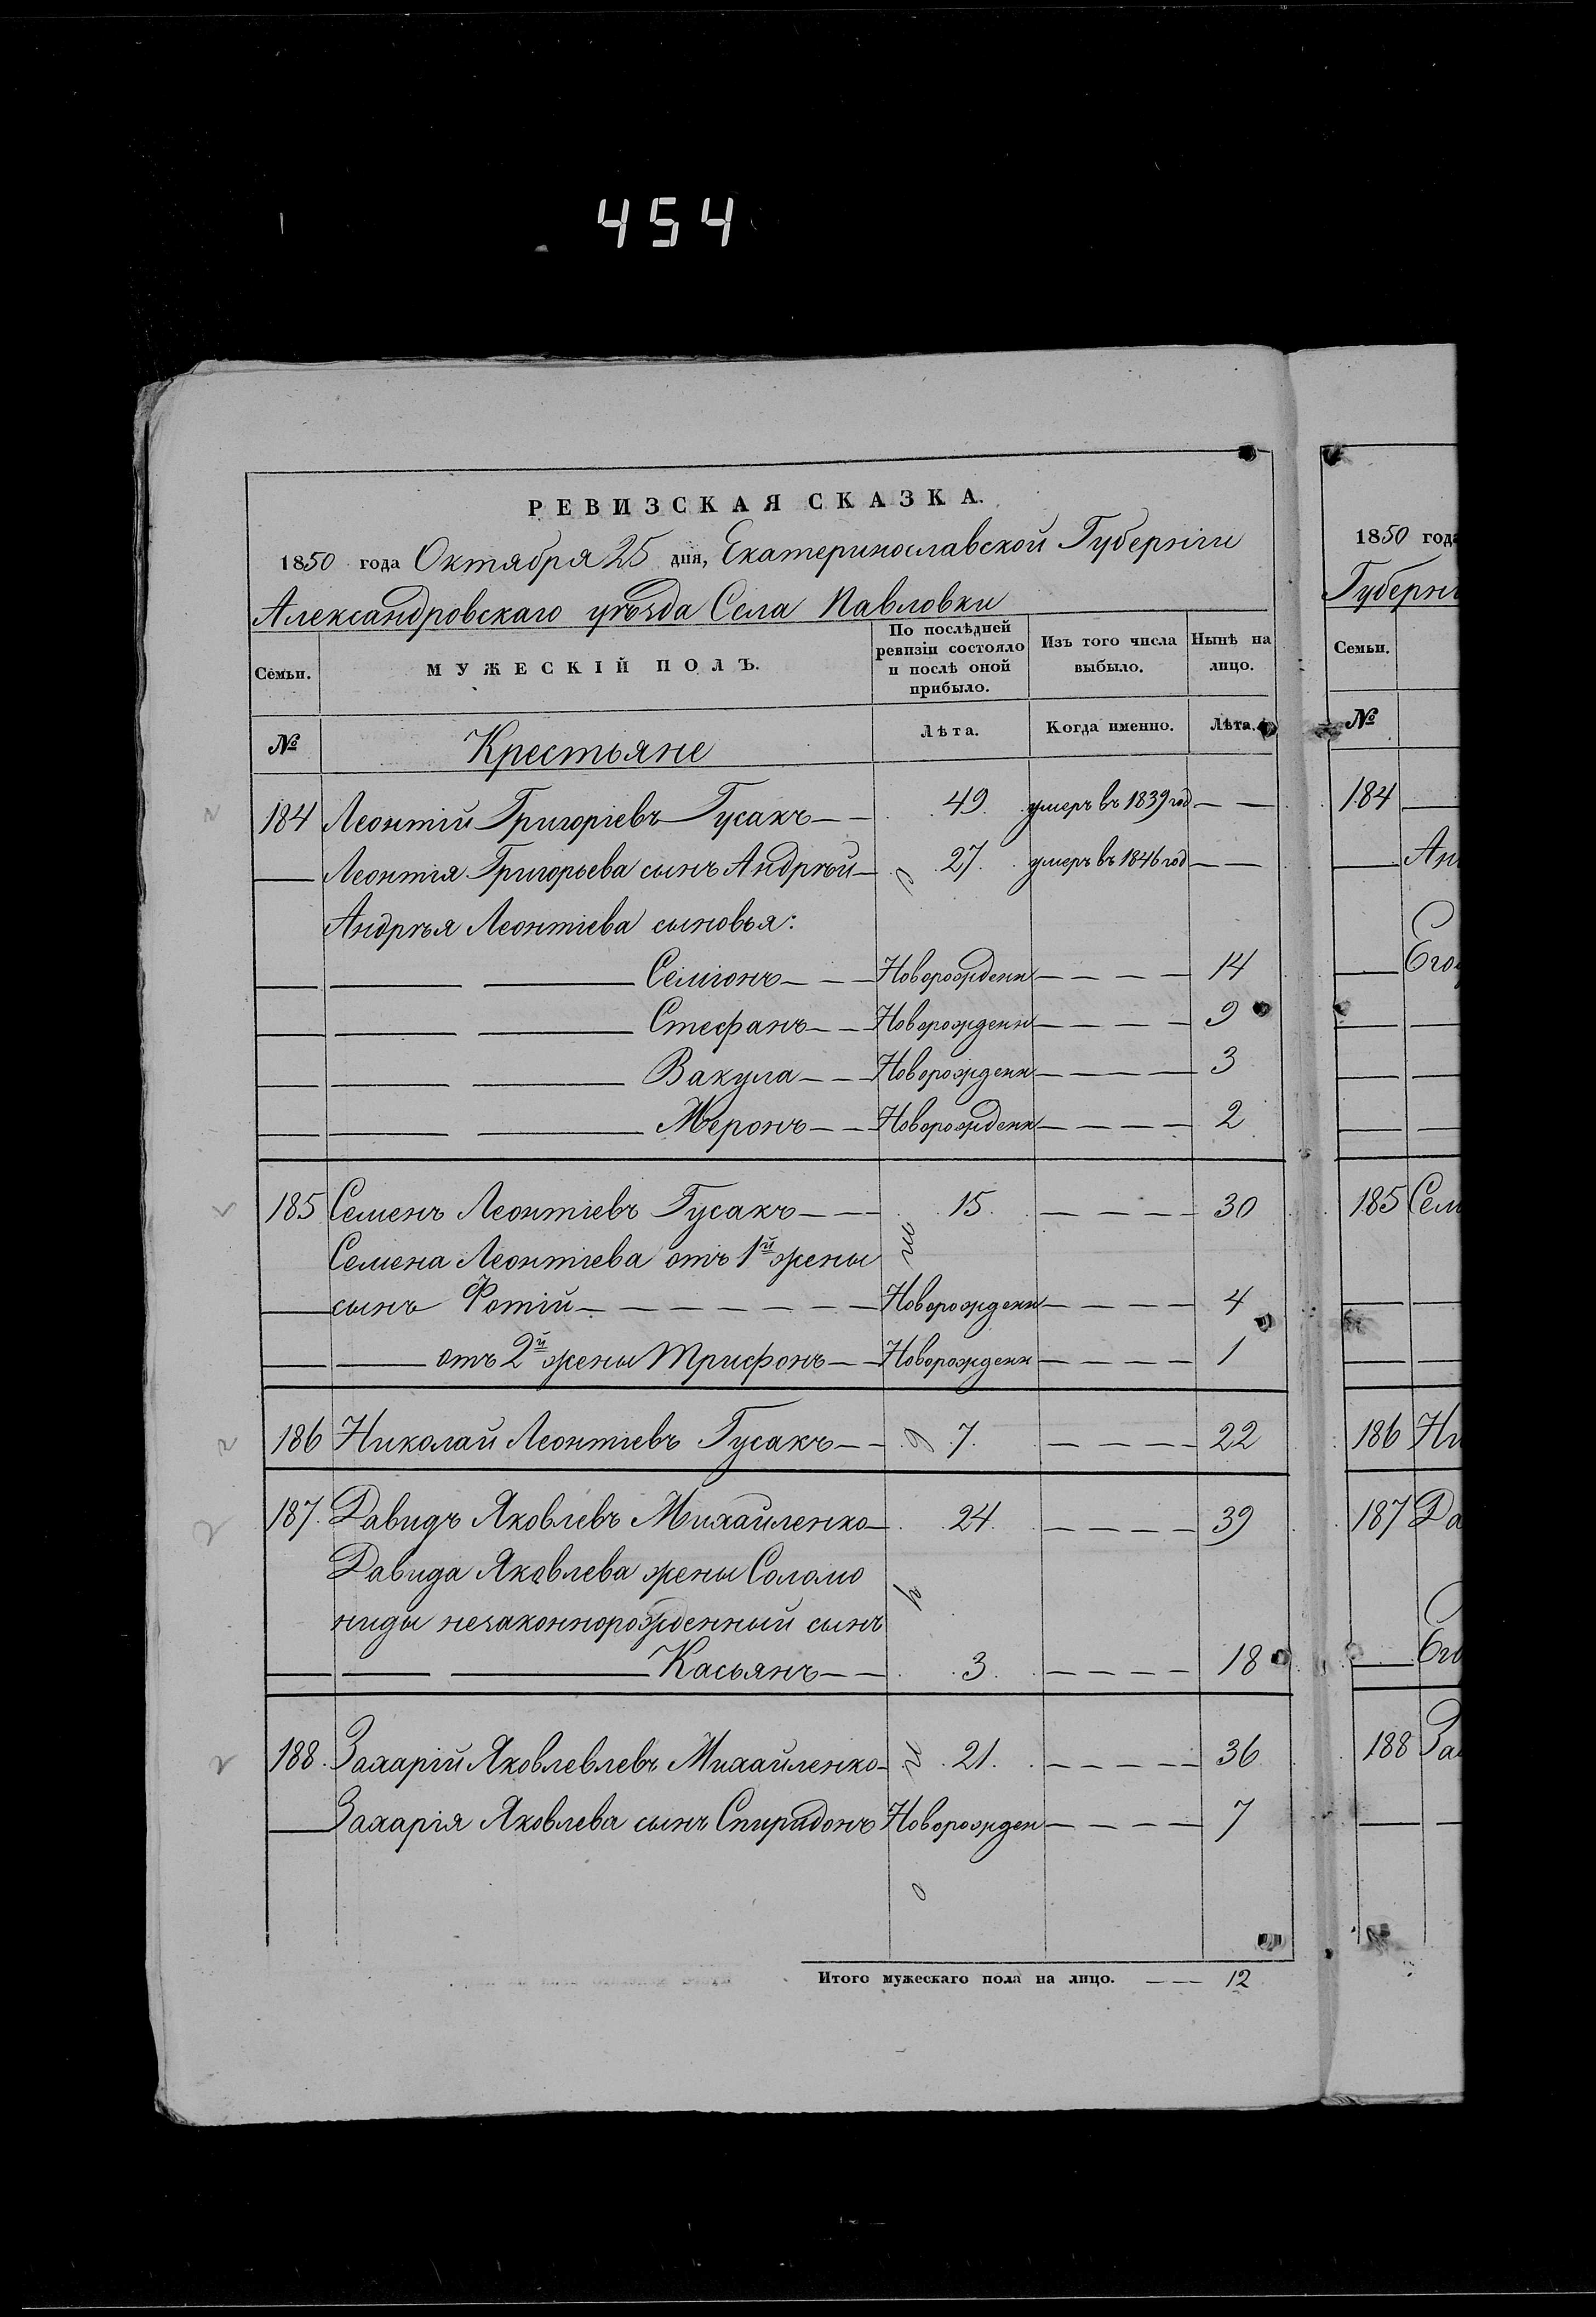 454
РЕВИЗСКАЯ СКАЗКА.
1850 года Октября 25 дня, Екатеринославской Губерніи
Александровскаго уѣзда Села Павловки
Семьи. МУЖЕСКІЙ ПОЛЪ. По послѣдней ревизіи состояло и послѣ оной прибыло. Изъ того числа выбыло. Нынѣ на лицо.
№ Крестьяне Лѣта. Когда именно. Лѣта.
184 Леонтій Григоріевъ Гусакъ — — 49. умеръ въ 1839 год — —
— Леонтія Григорьева сынъ Андрѣй — 27. умеръ въ 1846 год — —
Андрѣя Леонтіева сыновья:
— — — Семіонъ — — — Новорожденн — — — — 14
— — — Стефанъ — — Новорожденн — — — — 9
— — — Вакула — — — Новорожденн — — — — 3
— — — Меронъ — — Новорожденн — — — — 2
185 Семенъ Леонтіевъ Гусакъ — — — 15. — — — — 30
Семена Леонтіева отъ 1й жены
— сынъ Фотій — — — — — — — Новорожденн — — — — 4
— — отъ 2й жены Трифонъ — — Новорожденн — — — — 1
186 Николай Леонтіевъ Гусакъ — — 7. — — — — 22
187. Давидъ Яковлевъ Михайленко — 24. — — — — 39
Давида Яковлева жены Соломо
ниды незаконнорожденный сынъ
— — — Касьянъ — — 3. — — — — 18
188. Захарій Яковлевлевъ Михайленко — 21. — — — — 36
— Захарія Яковлева сынъ Спиридонъ Новорожден — — — — 7
Итого мужескаго пола на лицо. — — 12
1850 года
Губерні
Семьи.
№
184 —
— Ан
— Его
185 Сем
186 Ни
187 Да
— Его
188 За